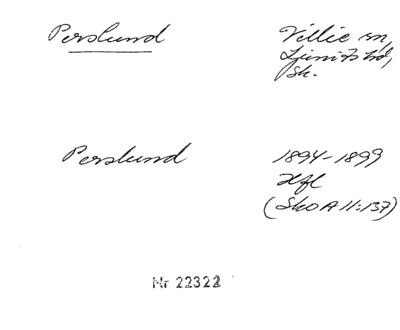 Perslund
Villie sn,
Ljunits hd,
Sk.
Perslund
1894-1899
Hfl
(SkO A 11:137)
Nr 22322